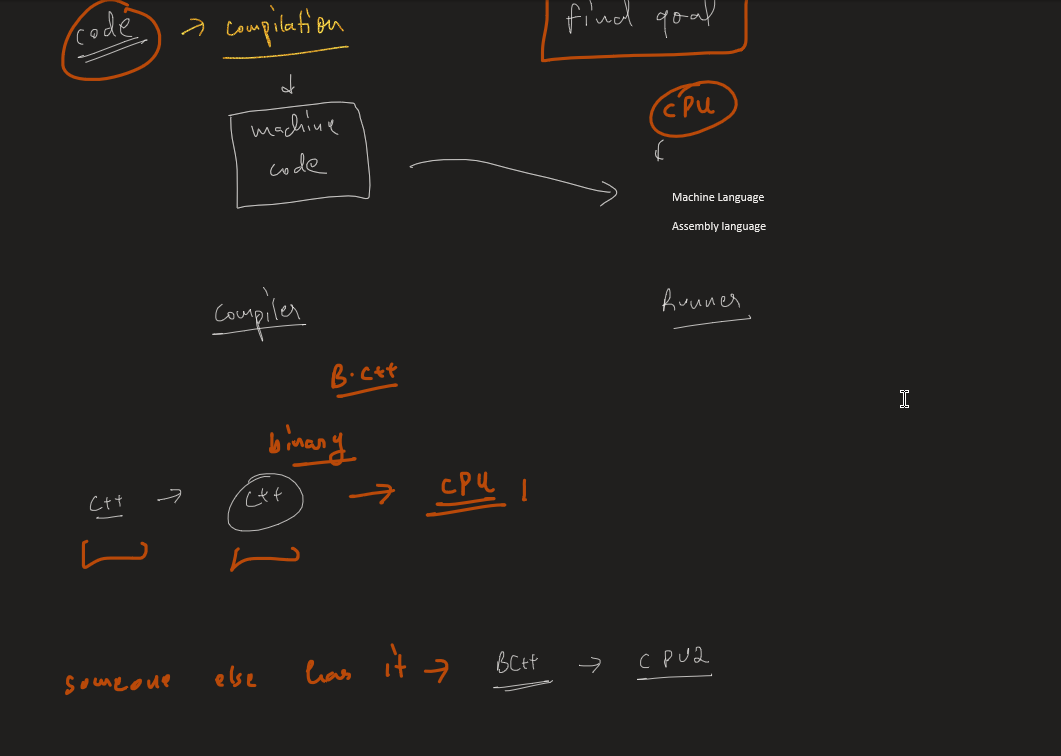 code → compilation
final goal
machine
code
CPU
Machine Language
Assembly language
compiler
Runner
B.C++
binary
C++ → C++ → CPU 1
someone else has it → BC++ → CPU2